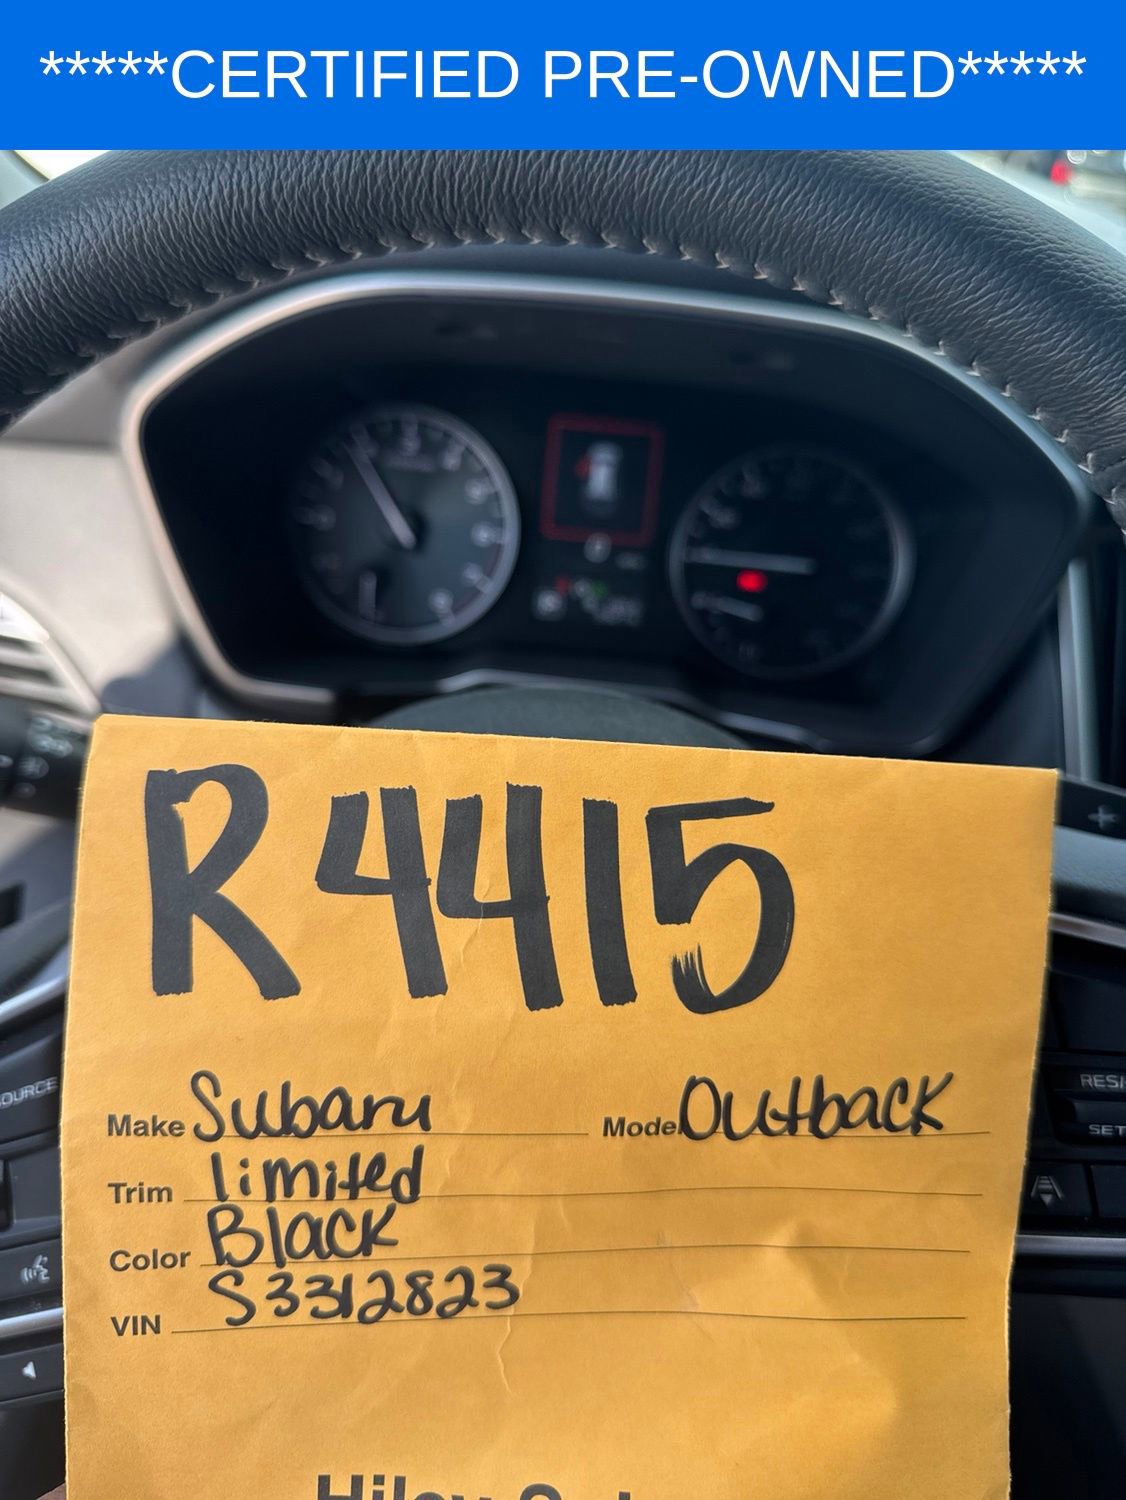 *****CERTIFIED PRE-OWNED*****
R4415
Make Subaru Model Outback
Trim limited
Color Black
VIN S3312823
SET